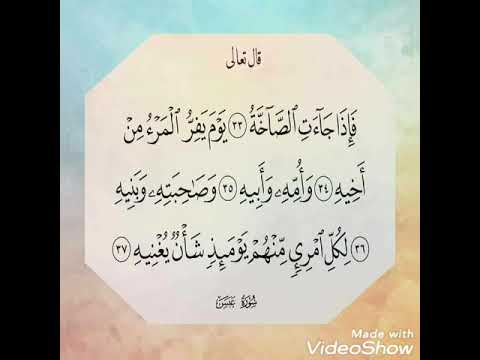 قال تعالى
فَإِذَا جَآءَتِ ٱلصَّآخَّةُ ٣٣ يَوْمَ يَفِرُّ ٱلْمَرْءُ مِنْ
أَخِيهِ ٣٤ وَأُمِّهِۦ وَأَبِيهِ ٣٥ وَصَٰحِبَتِهِۦ وَبَنِيهِ
٣٦ لِكُلِّ ٱمْرِئٍ مِّنْهُمْ يَوْمَئِذٍ شَأْنٌ يُغْنِيهِ ٣٧
سُورَةُ عَبَسَ
Made with
VideoShow